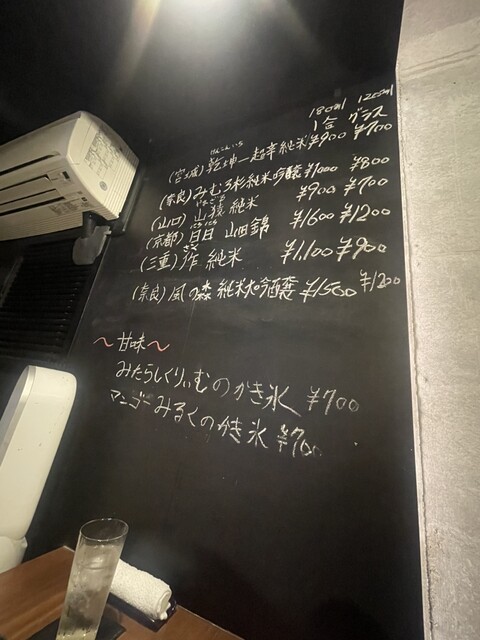 180ml 120ml
1合 グラス
けんこんいち
(宮城) 乾坤一超辛純米 ¥900 ¥700
(奈良) みむろ杉純米吟醸 ¥1000 ¥800
(山口) 山猿 純米 ¥900 ¥700
にちにち
(京都) 日日 山田錦 ¥1600 ¥1200
ざく
(三重) 作 純米 ¥1,100 ¥900
(奈良) 風の森 純米大吟醸 ¥1500 ¥1200
〜甘味〜
みたらしくりぃむのかき氷 ¥700
マンゴーみるくのかき氷 ¥700